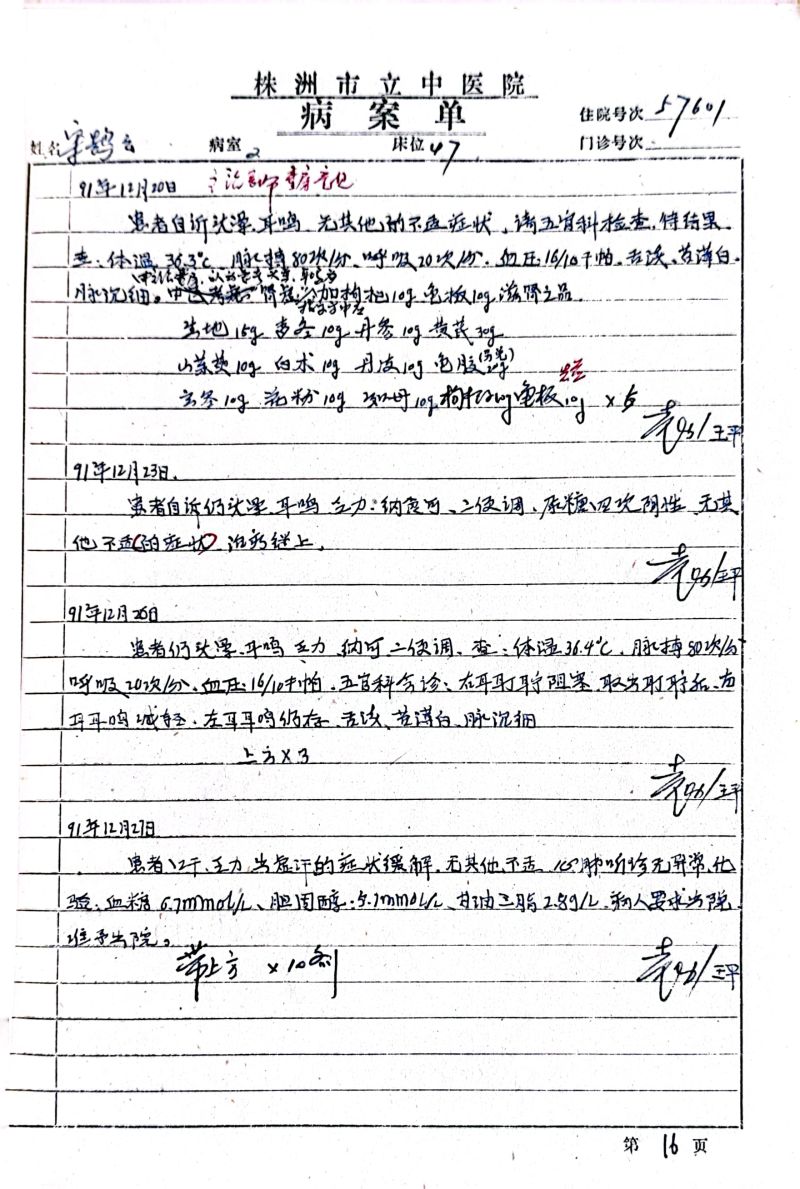 株洲市立中医院
病案单
住院号次 57601
姓名 宋鹄 病室 2 床位 47 门诊号次
91年12月20日 主治医师查房意见
患者自诉头晕、耳鸣、无其他的不适症状、请五官科检查、待结果。
查:体温 36.3℃、脉搏80次/分、呼吸20次/分、血压16/10千帕、舌淡、苔薄白、
脉沉细。加枸杞10g 龟板10g 滋肾之品。
生地15g 麦冬10g 丹参10g 黄芪30g
山萸萸10g 白术10g 丹皮10g 龟胶10g
玄参10g 花粉10g 知母10g 枸杞10g 龟板10g ×5
袁 /王平
91年12月23日.
患者自诉仍头晕、耳鸣、乏力、纳食可、二便调、尿糖四次阴性、无其
他不适(的症状) 治疗继上。
袁 /王平
91年12月26日
患者仍头晕、耳鸣、乏力、纳可、二便调、查:体温36.4℃、脉搏80次/分
呼吸20次/分、血压16/10千帕、五官科会诊:右耳耵聍阻塞、取出耵聍后、右
耳耳鸣减轻、左耳耳鸣仍存、舌淡、苔薄白、脉沉细
上方×3
袁 /王平
91年12月27日
患者口干、乏力、出虚汗的症状缓解、无其他不适、心肺听诊无异常、化
验:血糖6.7mmol/L、胆固醇:5.1mmol/L、甘油三脂2.89g/L、病人要求出院、
准予出院。
带上方 ×10剂
袁 /王平
第 16 页